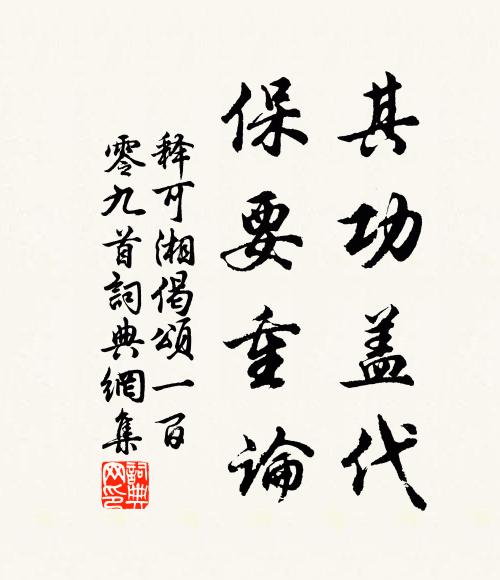 其功盖代
保要重論
释可湘偈頌一百
零九首詞典網集
詞典网印